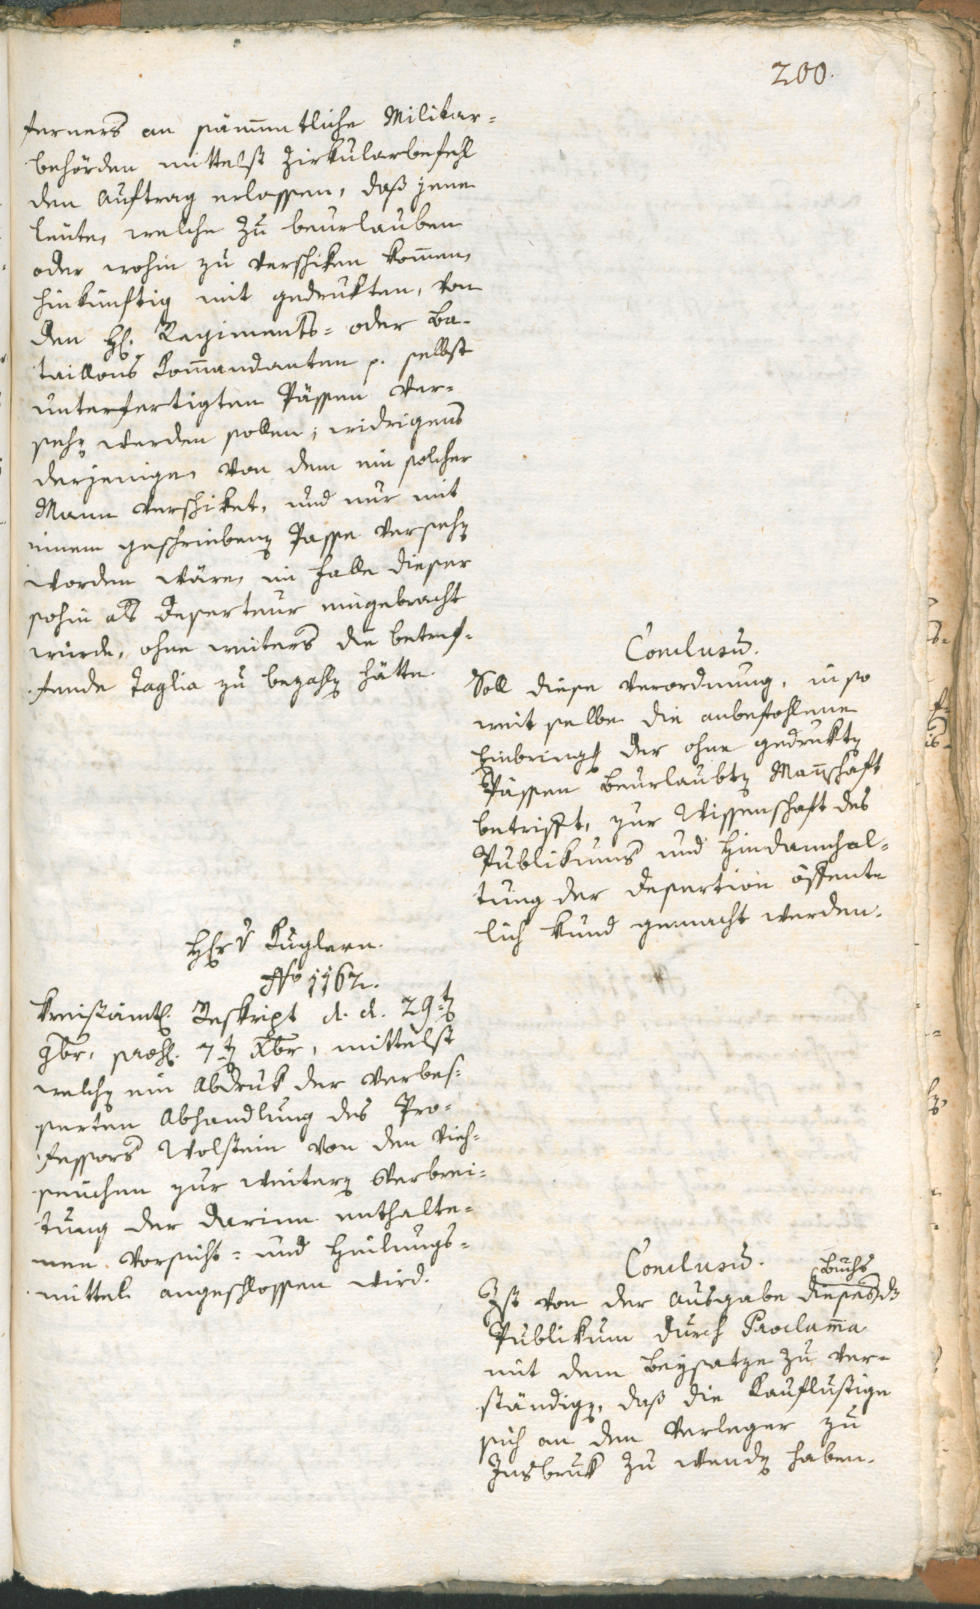 200.
ferners an sämmtliche Militar-
behörden mittelst Zirkularbefehl
den Auftrag erlassen, daß jene
Leute, welche zu beurlauben
oder wohin zu verschiken kom̄en,
hinkünftig mit gedrukten, von
den H. Regiments- oder Ba-
taillons Kom̄andanten p. selbst
unterfertigten Pässen ver-
sehen werden sollen; widrigens
derjenige, von dem ein solcher
Mann verschiket, und nur mit
einem geschriebenen Passe versehen
worden wäre, im Falle dieser
sohin als Deserteur eingebracht
würde, ohne weiters die betref-
fende Taglia zu bezahlen hätte.
Conclusum.
Soll diese Verordnung, in so
weit selbe die anbefohlene
Einbringung der ohne gedrukten
Pässen beurlaubten Man̄schaft
betrifft, zur Wissenschaft des
Publikums und Hindannhal-
tung der Desertion öffent-
lich kund gemacht werden.
H Kuglern.
No 1162.
Kreisämtl. Reskript d. d. 29ten
9br, praes. 7ten Xbr, mittelst
welchen ein Abdruk der verbes-
serten Abhandlung des Pro-
fessors Wolstein von den Vieh-
seuchen zur weitern Verbrei-
tung der darinn enthalte-
nen Vorsicht- und Heilungs-
mitteln angeschlossen wird.
Conclusum.
Buchs
Ist von der Ausgabe dieses das
Publikum durch Proclam̄a
mit dem Beysatze zu ver-
ständigen, daß die Kauflustige
sich an den Verleger zu
Insbruk zu wenden haben.